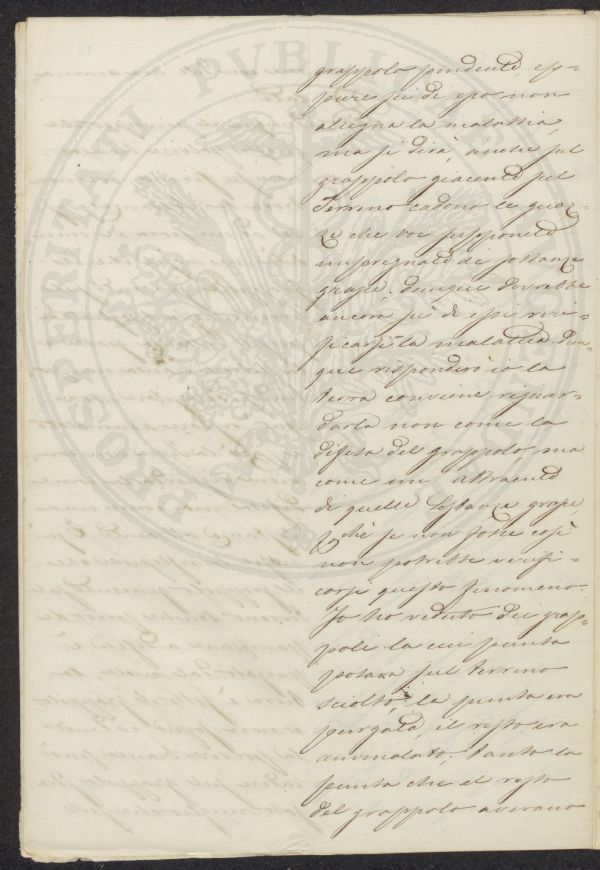 PROSPERITATI PVBLICAE AVGENDAE
grappolo pendente ep-
pure su di esso non
allegna la malattia,
ma si dirà, anche sul
grappolo giacente sul
Terreno cadono le guaz-
ze che voi supponete
impregnate de sostanze
grasse, dunque dovrebbe
ancora su di essi veri-
ficarsi la malattia. Dun-
que risponderò io la
terra conviene riguar-
darla non come la
difesa del grappolo, ma
come un attraente
di quelle sostanze grasse,
chè se non fosse così
non potrebbe verifi-
carsi questo fenomeno.
Io ho veduto dei grap-
poli la cui punta
posava sul terreno
sciolto, la punta era
purgata, il resto era
ammalato. tanto la
punta che el resto
del grappolo avevano